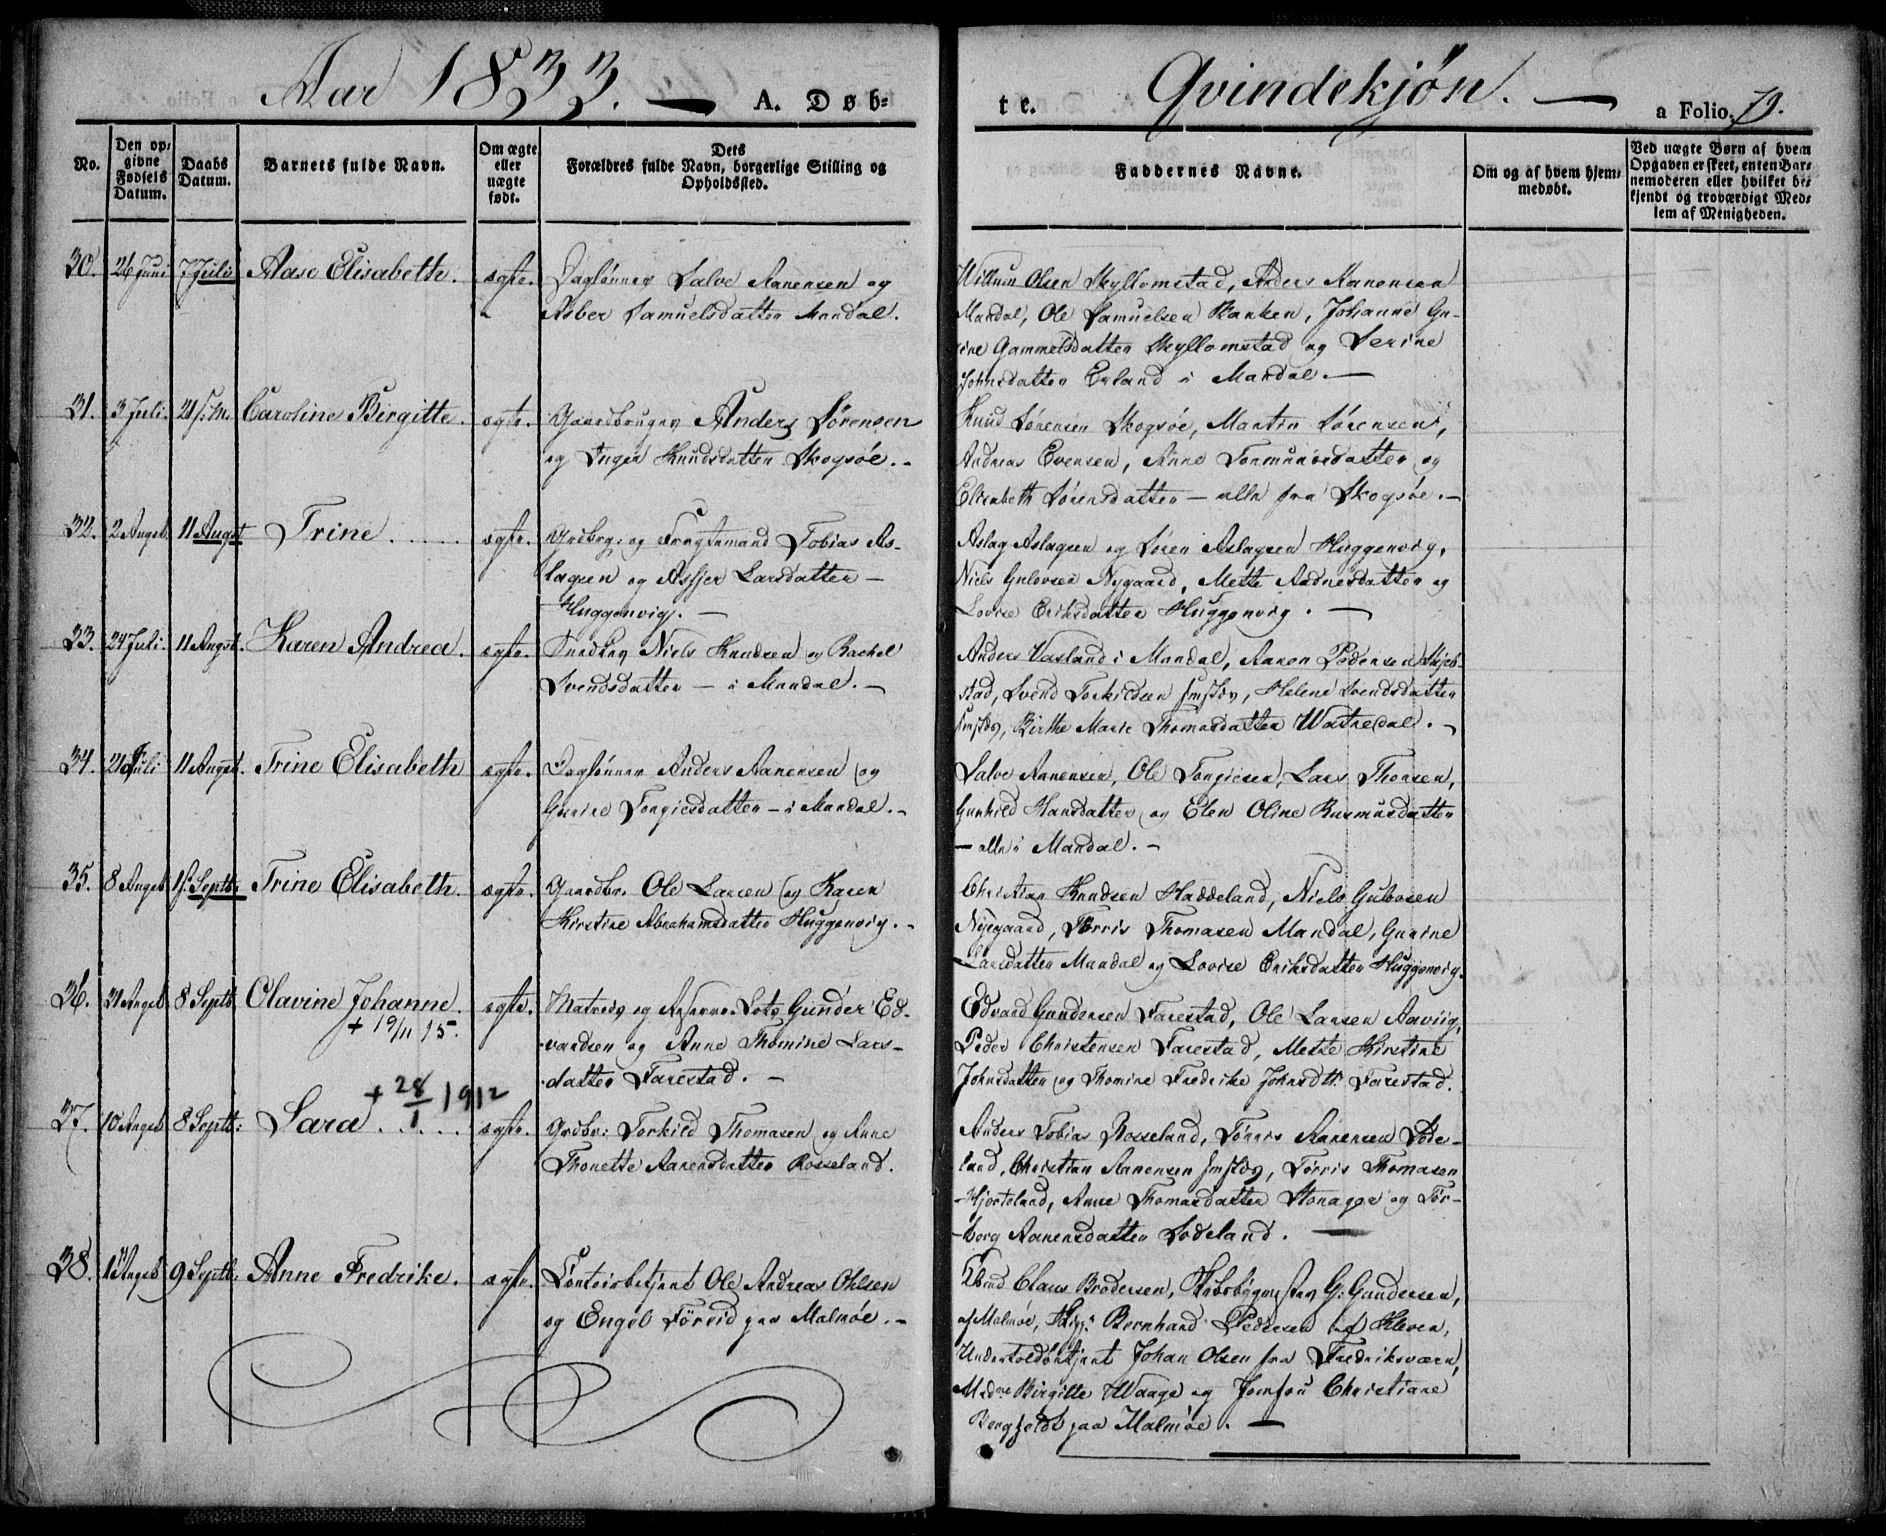 Aar 1833. — A. Døb-
te. Qvindekjøn. — a Folio. 79.
No.
Den op-
givne
Fødsels
Datum.
Daabs
Datum.
Barnets fulde Navn.
Om ægte
eller
uægte
født.
Dets
Forældres fulde Navn, borgerlige Stilling og
Opholdssted.
Faddernes Navne.
Om og af hvem hjem-
medøbt.
Ved uægte Børn af hvem
Opgaven er skeet, enten Bar-
nemoderen eller hvilket be-
kjendt og troværdigt Med-
lem af Menigheden.
30. 26 Juni 7 Juli Aase Elisabeth. ægte. Daglønner Salve Aanensen og
Asber Samuelsdatter Mandal.
Willum Olsen Skyllomstad, Anders Aanensen
Mandal, Ole Samuelsen Banken, Johanne Gu-
rine Gammelsdatter Skyllomstad og Serine
Johnsdatter Eyland i Mandal. —
31. 3 Juli. 21 s: M. Caroline Birgitte. ægte. Gaardbruger Anders Sørensen
og Inger Knudsdatter Skogsøe. -
Knud Sørensen Skogsøe, Martin Sørensen,
Andreas Evensen, Anne Tormundsdatter og
Elisabeth Sørensdatter — alle fra Skogsøe. -
32. 2 Augst 11 Augst Trine . . . . . ægte. Grdbrg: og Fragtemand Tobias As-
lagsen og Asbjer Larsdatter —
Huggenvig. —
Aslag Aslagsen og Søren Aslagsen Huggenvig,
Niels Gulovsen Nygaard, Mette Andnesdatter og
Lovise Eriksdatter Huggenvig. —
33. 24 Juli. 11 Augst. Karen Andrea. ægte. Snedker Niels Knudsen og Rachel
Svendsdatter — i Mandal. -
Anders Vasland i Mandal, Aanen Pedersen Skjeb-
stad, Svend Torkildsen Imsley, Helene Svendsdatter
Imsley, Birthe Marie Thomasdatter Watnedal. -
34. 21 Juli 11 Augst. Trine Elisabeth ægte. Daglønner Anders Aanensen og
Gurine Tongiesdatter — i Mandal. -
Salve Aanensen, Ole Tongiesen, Lars Thorsen,
Gunhild Hansdatter og Elen Oline Rasmusdatter
— alle i Mandal. -
35. 8 Augst 1st Septb: Trine Elisabeth. ægte. Gaardbr. Ole Larsen og Karen
Kirstine Abrahamsdatter Huggenvig. -
Christian Knudsen Haddeland, Niels Gulovsen
Nyegaard, Tørris Thomasen Mandal, Gurine
Larsdatter Mandal og Lovise Eriksdatter Huggenvig.
36. 21 Augst 8 Septb Olavine Johanne. ægte. Matros og Reserve Lots Gunder Ed-
+ 19/11 15.
vardsen og Anne Thomine Lars-
datter Farestad. -
Edvard Gundersen Farestad, Ole Larsen Aavig,
Peder Christensen Farestad, Mette Kirstine
Johnsdatter og Thomine Fredrike Johnsdtr. Farestad.
+ 28/1 1912
37. 10 Augst 8 Septb: Sara . . . . ægte. Grdbr: Torkild Thomasen og Anne
Thonette Aanensdatter Rosseland.
Anders Tobias Rosseland, Tønnes Aanensen Lode-
land, Christian Aanensen Imsley, Tørris Thomasen
Hjorteland, Anne Thomasdatter Stonager og Tor-
borg Aanensdatter Lodeland. —
38. Augst 9 Septb: Anne Fredrike. ægte. Contoirbetjent Ole Andreas Ohlsen
og Engel Förrid paa Malmøe. -
Claus Brodersen, G: Gundersen,
af Malmøe, Bernhard Pedersen af Kleven,
Undertoldbetjent Johan Olsen fra Fredriksværn,
Madme Birgitte Waage og Jomfru Christiane
Bergfeldt paa Malmøe. —